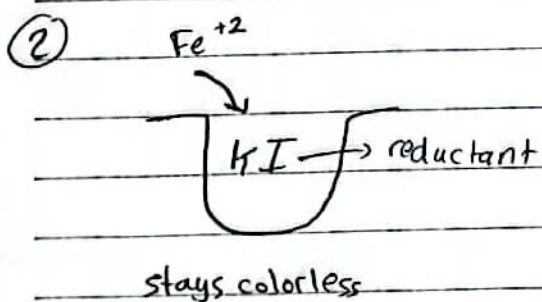 ②
Fe⁺²
KI → reductant
stays colorless